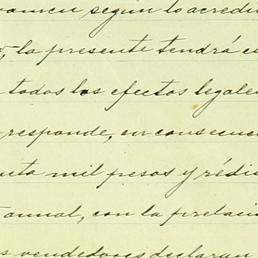 según lo acredi
la presente tendrá
todos los efectos legale
responde, en consecuen
mil pesos y rédi
anual, con la prelaci
vendedores declaran